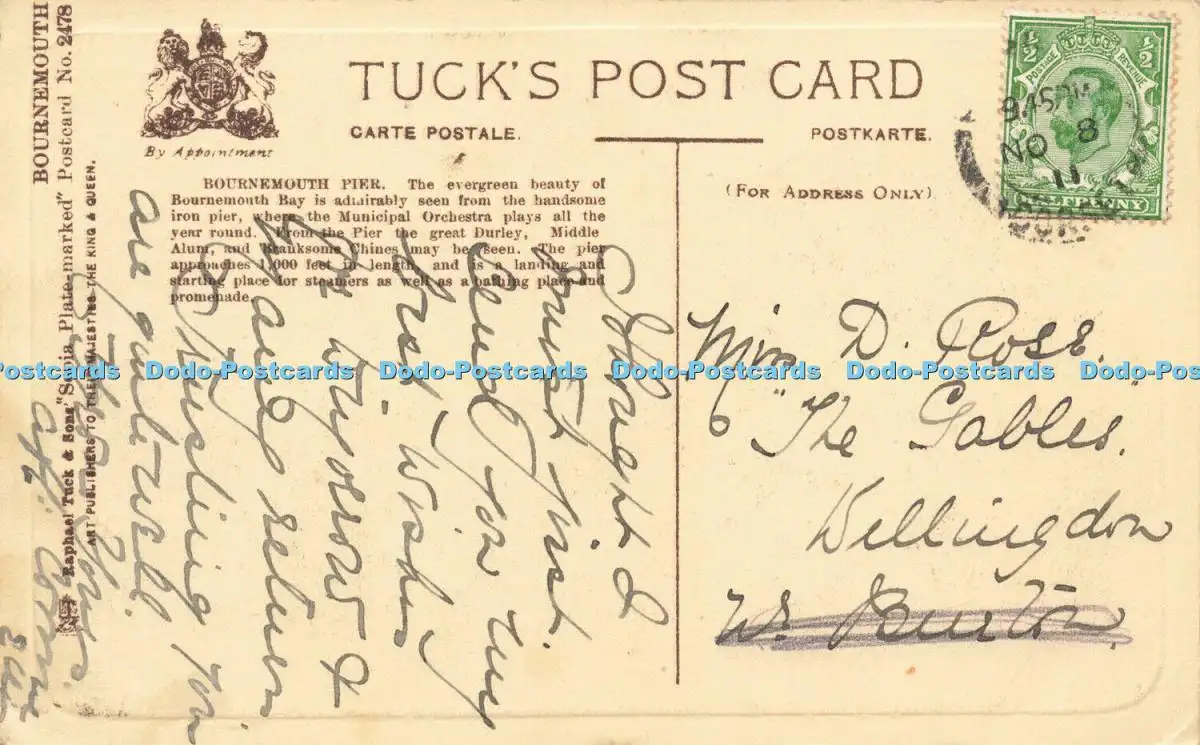 BOURNEMOUTH
Raphael Tuck & Sons' "Sepia Plate-marked" Postcard No. 2478
ART PUBLISHERS TO THEIR MAJESTIES THE KING & QUEEN.
By Appointment
TUCK'S POST CARD
CARTE POSTALE.
POSTKARTE.
(FOR ADDRESS ONLY)
BOURNEMOUTH PIER. The evergreen beauty of
Bournemouth Bay is admirably seen from the handsome
iron pier, where the Municipal Orchestra plays all the
year round. From the Pier the great Durley, Middle
Alum, and Branksome Chines may be seen. The pier
approaches 1,000 feet in length, and is a landing and
starting place for steamers as well as a bathing place and
promenade.
½ ½
POSTAGE REVENUE
HALFPENNY
9.45 PM
NO 8
11
Thought I
must just
send you my
best wishes
for &
return
trusting you
are quite well.
Yours
aff:
Miss D. Ross.
"The Gables"
Willingdon
Dodo-Postcards Dodo-Postcards Dodo-Postcards Dodo-Postcards Dodo-Postcards Dodo-Postcards